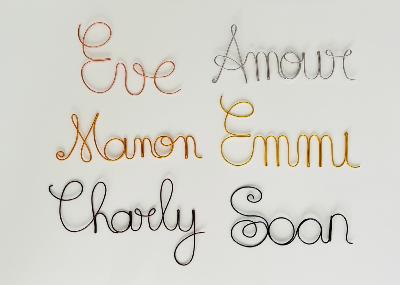 Eve Amour
Manon Emmi
Charly Soan